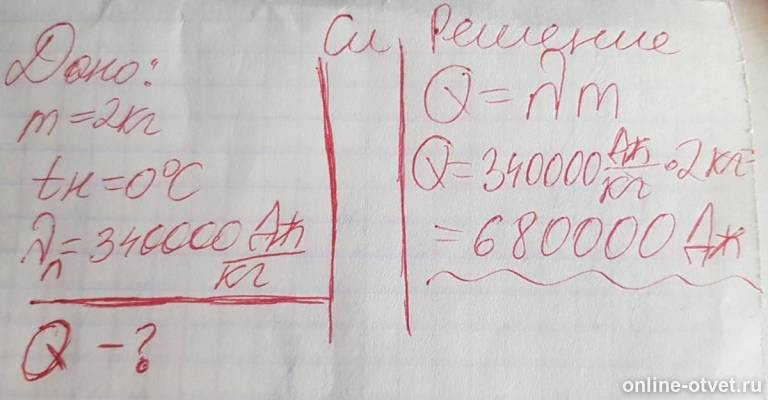 Дано:
m=2кг
tн=0°C
λл=340000 Дж/кг
Q-?
Си
Решение
Q=λm
Q=340000 Дж/кг•2кг=
=680000 Дж
online-otvet.ru